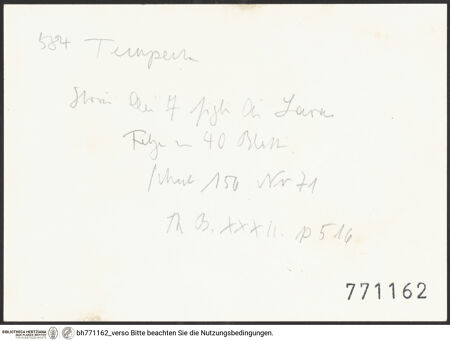 584 Tempesta
Storia dei 7 figli di Lara
Folge in 40 Blatt.
150 Nr 71
Th B. XXXII. p 516
771162
BIBLIOTHECA HERTZIANA
bh771162_verso Bitte beachten Sie die Nutzungsbedingungen.